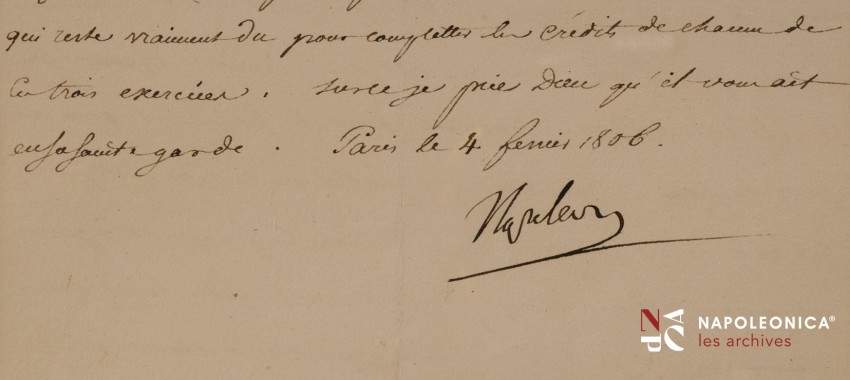 qui reste vraiment du pour completter les crédits de chacun de
ces trois exercices. Sur ce je prie Dieu qu'il vous ait
en sa sainte garde. Paris le 4 fevrier 1806.
Napoleon
NAPOLEONICA®
les archives